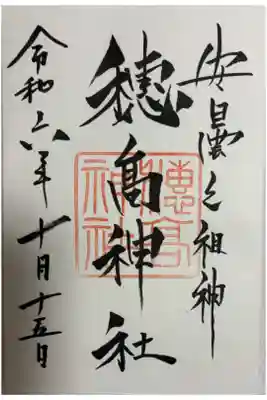 安曇之祖神
穂高神社
穂高神社
令和六年十月十五日